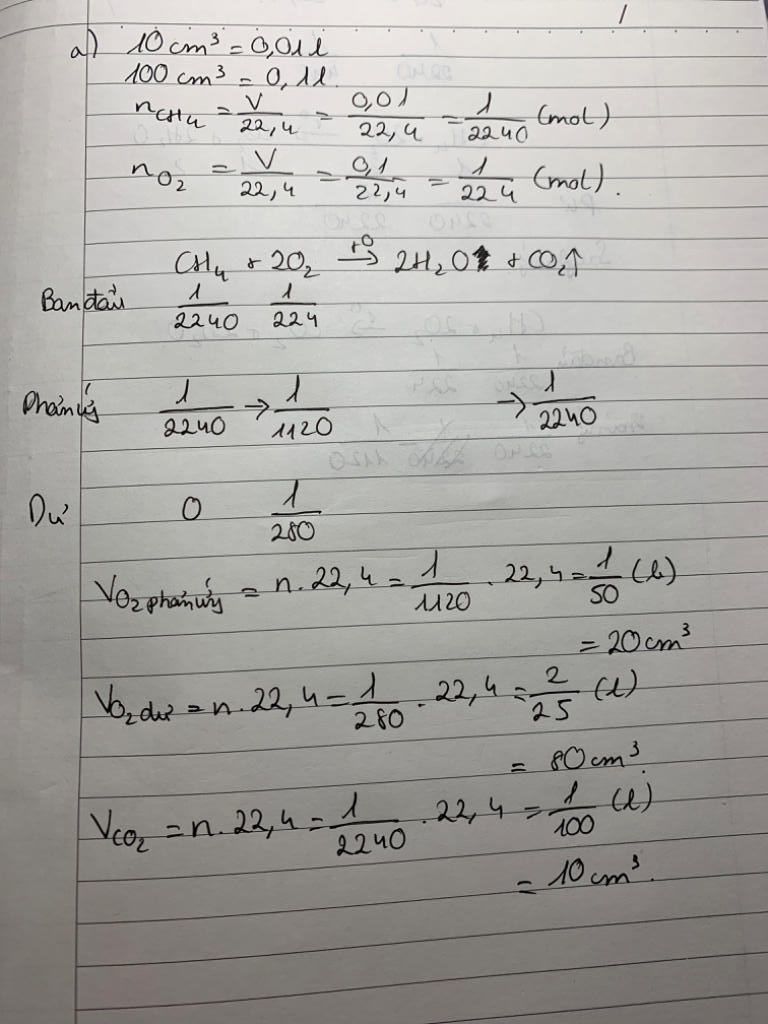 a) 10 cm³ = 0,01 l
100 cm³ = 0,1 l.
n CH₄ = V/22,4 = 0,01/22,4 = 1/2240 (mol)
n O₂ = V/22,4 = 0,1/22,4 = 1/224 (mol).
CH₄ + 2O₂ →(t°) 2H₂O + CO₂↑
Ban đầu 1/2240 1/224
Phản ứng 1/2240 → 1/1120 → 1/2240
Dư 0 1/280
V O₂ phản ứng = n . 22,4 = 1/1120 . 22,4 = 1/50 (l)
= 20 cm³
V O₂ dư = n . 22,4 = 1/280 . 22,4 = 2/25 (l)
= 80 cm³.
V CO₂ = n . 22,4 = 1/2240 . 22,4 = 1/100 (l)
= 10 cm³.